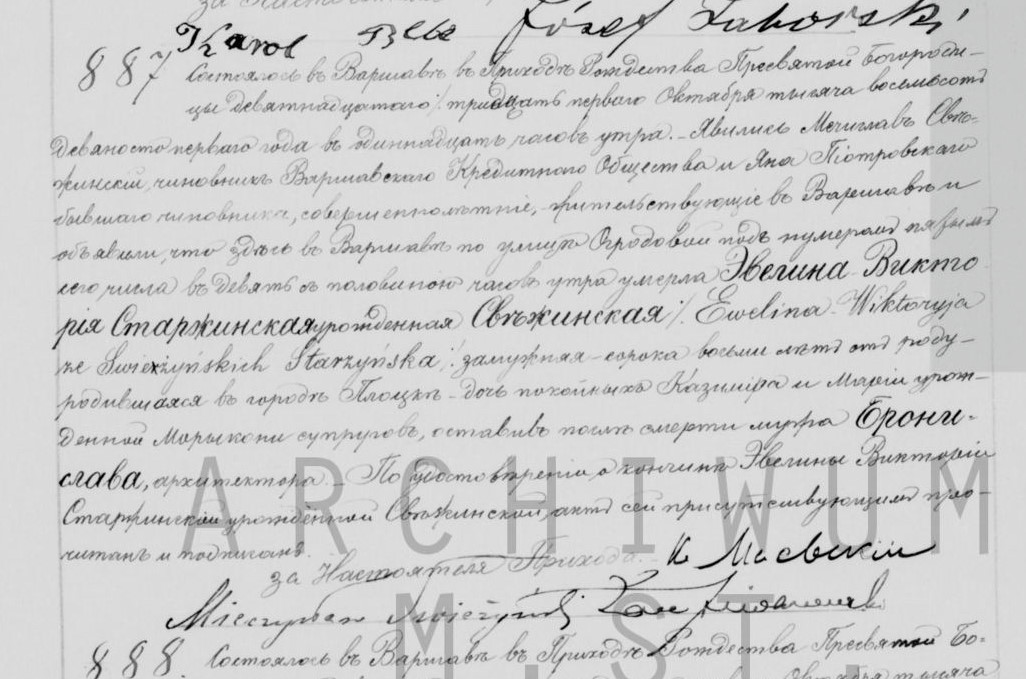 за
Karol Józef
887 Состоялось въ Варшавѣ въ Приходѣ Рождества Пресвятой Богороди-
цы девятнадцатаго /: тридцать перваго Октября тысяча восемьсотъ
девяносто перваго года въ одиннадцать часовъ утра. – Явились Мечиславъ Свѣ-
жинскій, чиновникъ Варшавскаго Кредитнаго Общества и Яна Піотровскаго
бывшаго чиновника, совершеннолѣтніе, жительствующіе въ Варшавѣ и
объявили, что здѣсь въ Варшавѣ по улицѣ Огродовой подъ нумеромъ
сего числа въ девять съ половиною часовъ утра умерла Эвелина Викто
рія Старжинская урожденная Свѣжинская /: Ewelina Wiktoryja
ze Swierzyńskich Starzyńska :/ замужняя – сорока восьми лѣтъ отъ роду –
родившаяся въ городѣ Плоцкѣ – дочь покойныхъ Казиміра и Маріи урож-
денной Морыкони супруговъ, оставивъ послѣ смерти мужа Брони-
слава, архитектора. – По удостовѣреніи о кончинѣ Эвелины Викторіи
Старжинской урожденной Свѣжинской, актъ сей присутствующимъ про-
читанъ и подписанъ.
за Настоятеля Прихода
888 Состоялось въ Варшавѣ въ Приходѣ Рождества Пресвятой Бо-
Октября тысяча
ARCHIWUM
M.ST.